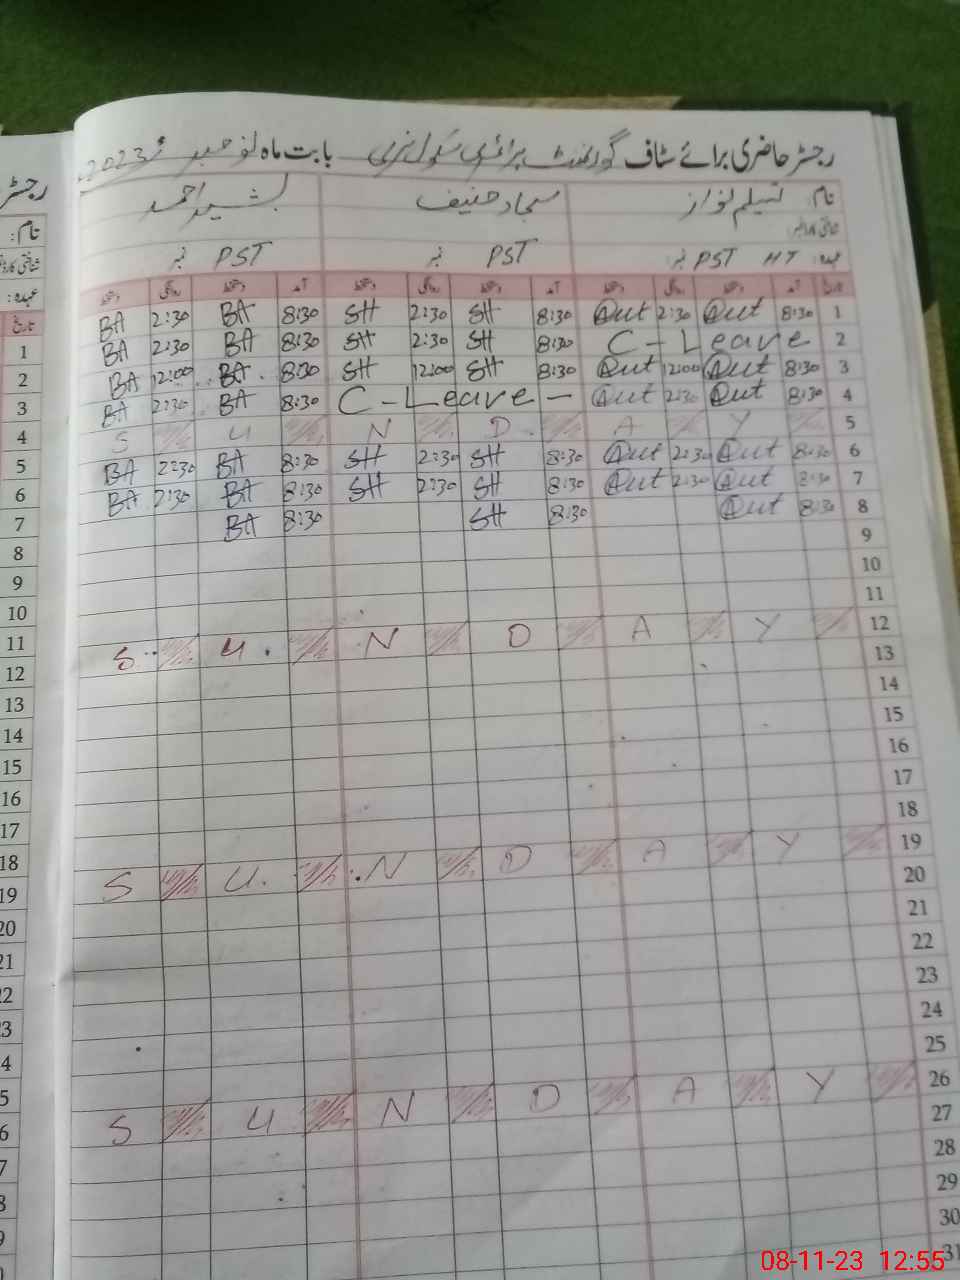 رجسٹر حاضری برائے سٹاف گورنمنٹ پرائمری سکول بابت ماہ نومبر 2023ء
نام: تسلیم نواز سجاد حنیف بشیر احمد
شناختی کارڈ نمبر:
عہدہ: PST HT نمبر PST نمبر PST نمبر
تاریخ آمد دستخط روانگی دستخط آمد دستخط روانگی دستخط آمد دستخط روانگی دستخط
BA 2:30 BA 8:30 SH 2:30 SH 8:30 Out 2:30 Out 8:30 1
BA 2:30 BA 8:30 SH 2:30 SH 8:30 C - Leave 2
BA 12:00 BA 8:30 SH 12:00 SH 8:30 Out 12:00 Out 8:30 3
BA 2:30 BA 8:30 C - Leave - Out 2:30 Out 8:30 4
S U N D A Y 5
BA 2:30 BA 8:30 SH 2:30 SH 8:30 Out 2:30 Out 8:30 6
BA 2:30 BA 8:30 SH 2:30 SH 8:30 Out 2:30 Out 8:30 7
BA 8:30 SH 8:30 Out 8:30 8
9
10
11
S U N D A Y 12
13
14
15
16
17
18
S U N D A Y 19
20
21
22
23
24
25
S U N D A Y 26
27
28
29
30
31
رجسٹر
نام:
شناختی کارڈ
عہدہ:
تاریخ
1
2
3
4
5
6
7
8
9
10
11
12
13
14
15
16
17
18
19
20
21
08-11-23 12:55